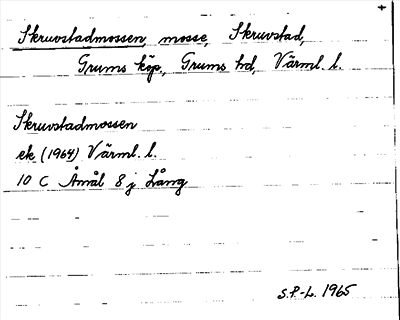 +
Skruvstadmossen, mosse, Skruvstad,
Grums köp., Grums hd, Värml. l.
Skruvstadmossen
ek (1964) Värml. l.
10 C Åmål 8 j Lång
S.P-L. 1965